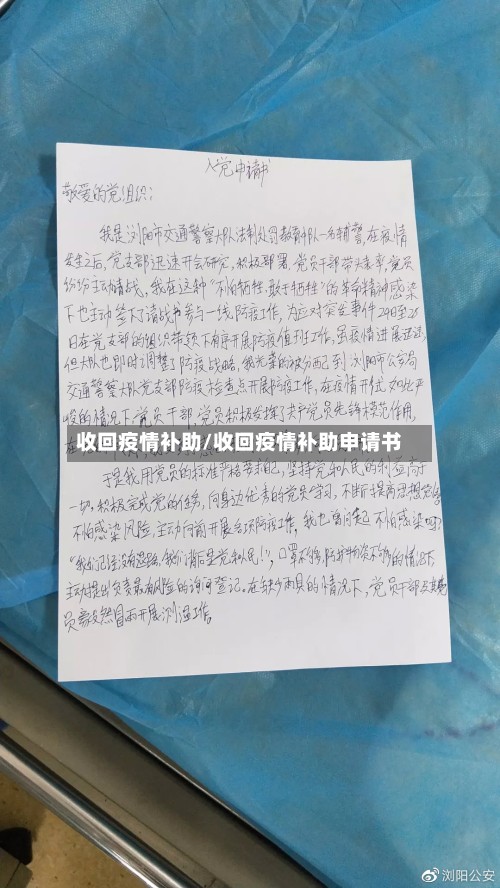 入党申请书
敬爱的党组织:
我是浏阳市交通警察大队法制处罚教育中队一名辅警,在疫情
发生之后,党支部迅速开会研究,积极部署,党员干部带头表率,党员
纷纷主动请战,我在这种“不怕牺牲,敢于牺牲”的革命精神感染
下也主动签下了请战书参与一线防疫工作,为应对突发事件24日至25
日在党支部的组织带领下有序开展防疫值班工作,虽疫情进展迅速,
但大队也即时调整了防疫战略,我光荣的被分配到浏阳市公安局
交通警察大队党支部防疫检查点开展防疫工作,在疫情形式如此严
峻的情况下,党员干部,党员积极发挥了共产党员先锋模范作用,
收回疫情补助/收回疫情补助申请书
于是我用党员的标准严格要求自己,坚持党和人民的利益高于
一切,积极完成党的任务,向身边优秀的党员学习,不断提高思想觉悟
不怕感染风险,主动向前开展各项防疫工作,我也曾问过不怕感染吗?
“我们已经没有退路,我们背后是党和人民!”,口罩不够,防护物资不够的情况下
主动提出负责最有风险的询问登记,在缺少雨具的情况下,党员干部及其党
员毅然冒雨开展测温工作。
浏阳公安